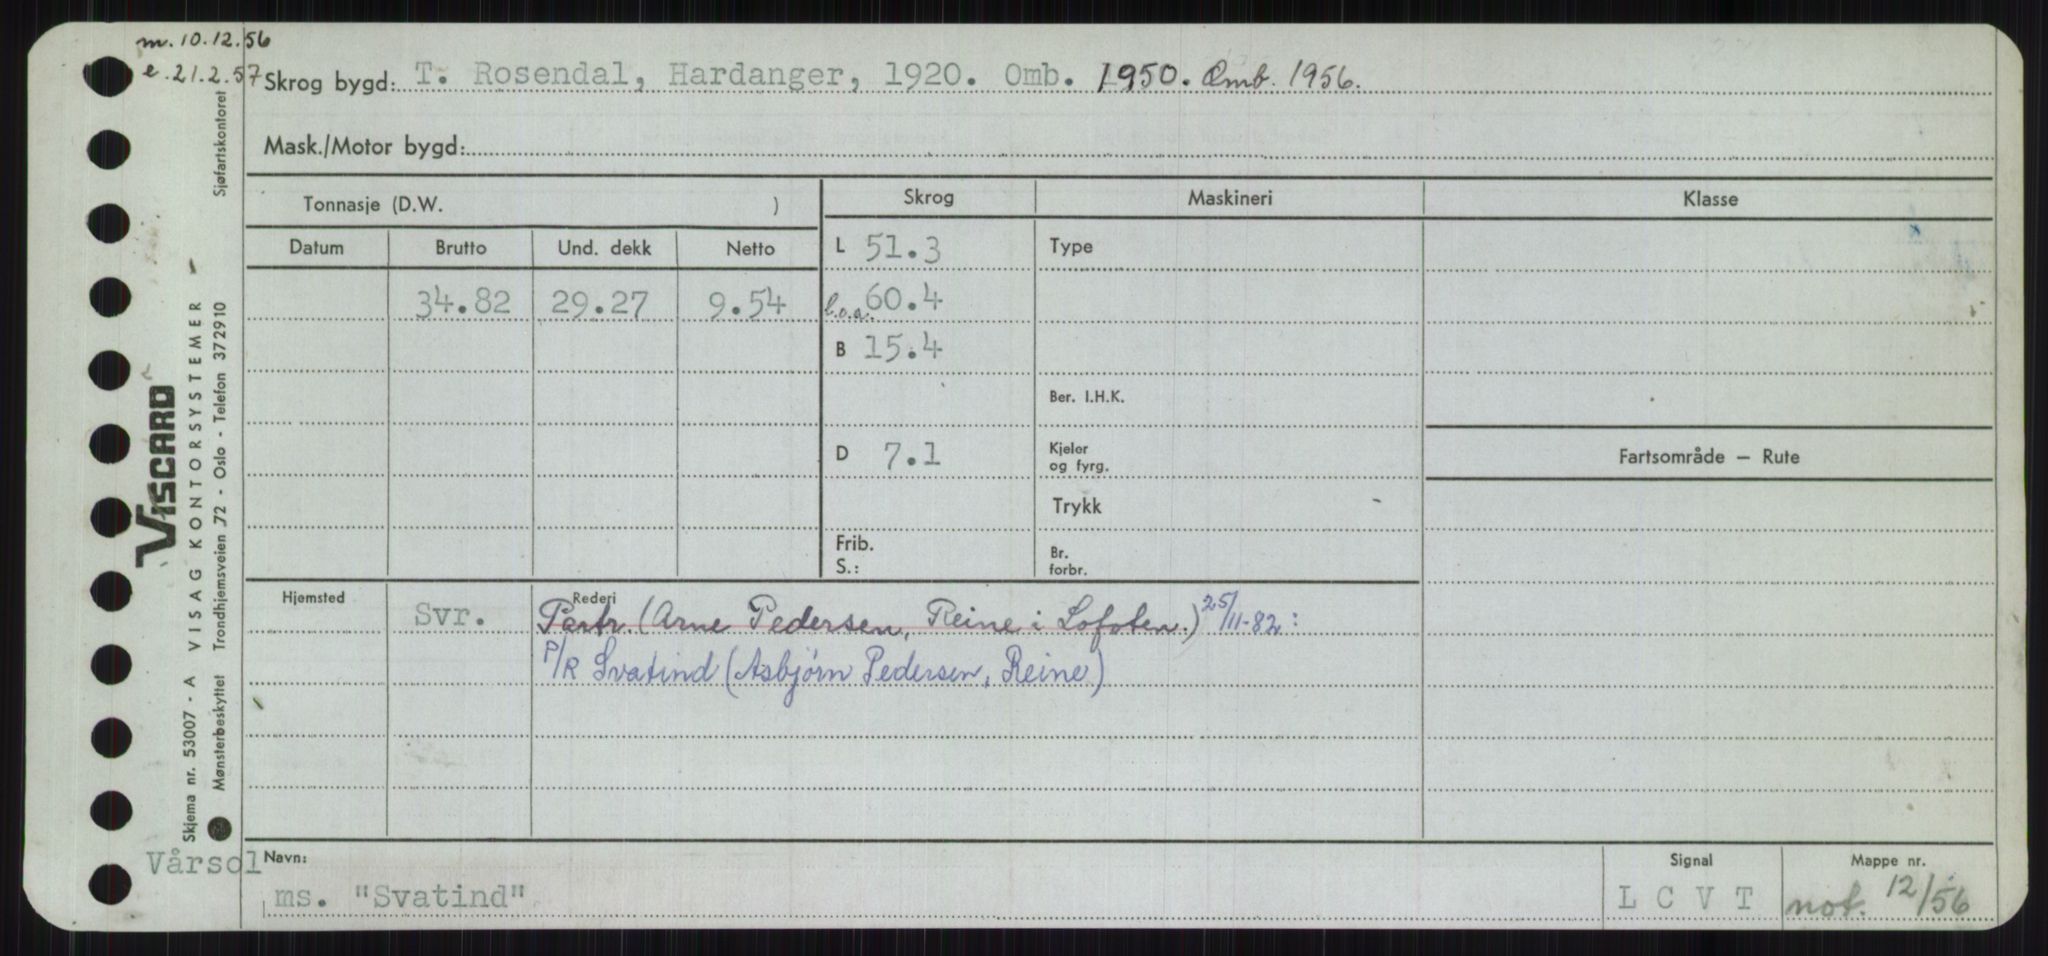 m. 10.12.56
e. 21.2.57
Skrog bygd: T. Rosendal, Hardanger, 1920. Omb. 1950. Omb. 1956.
Mask./Motor bygd:
Tonnasje (D.W. )
Skrog Maskineri Klasse
Datum Brutto Und. dekk Netto
L 51.3 Type
34.82 29.27 9.54
l.o.a. 60.4
B 15.4
Ber. I.H.K.
D 7.1 Kjeler og fyrg.
Fartsområde — Rute
Trykk
Frib.
S.:
Br. forbr.
Hjemsted Svr. Rederi
Partr. (Arne Pedersen, Reine i Lofoten.) 25/11-82:
P/R Svatind (Asbjørn Pedersen, Reine)
Vårsol
Navn:
ms. "Svatind"
Signal
L C V T
Mappe nr.
not. 12/56
VISCARD
VISAG KONTORSYSTEMER
Skjema nr. 53007 - A
Mønsterbeskyttet Trondhjemsveien 72 - Oslo - Telefon 372910 Sjøfartskontoret